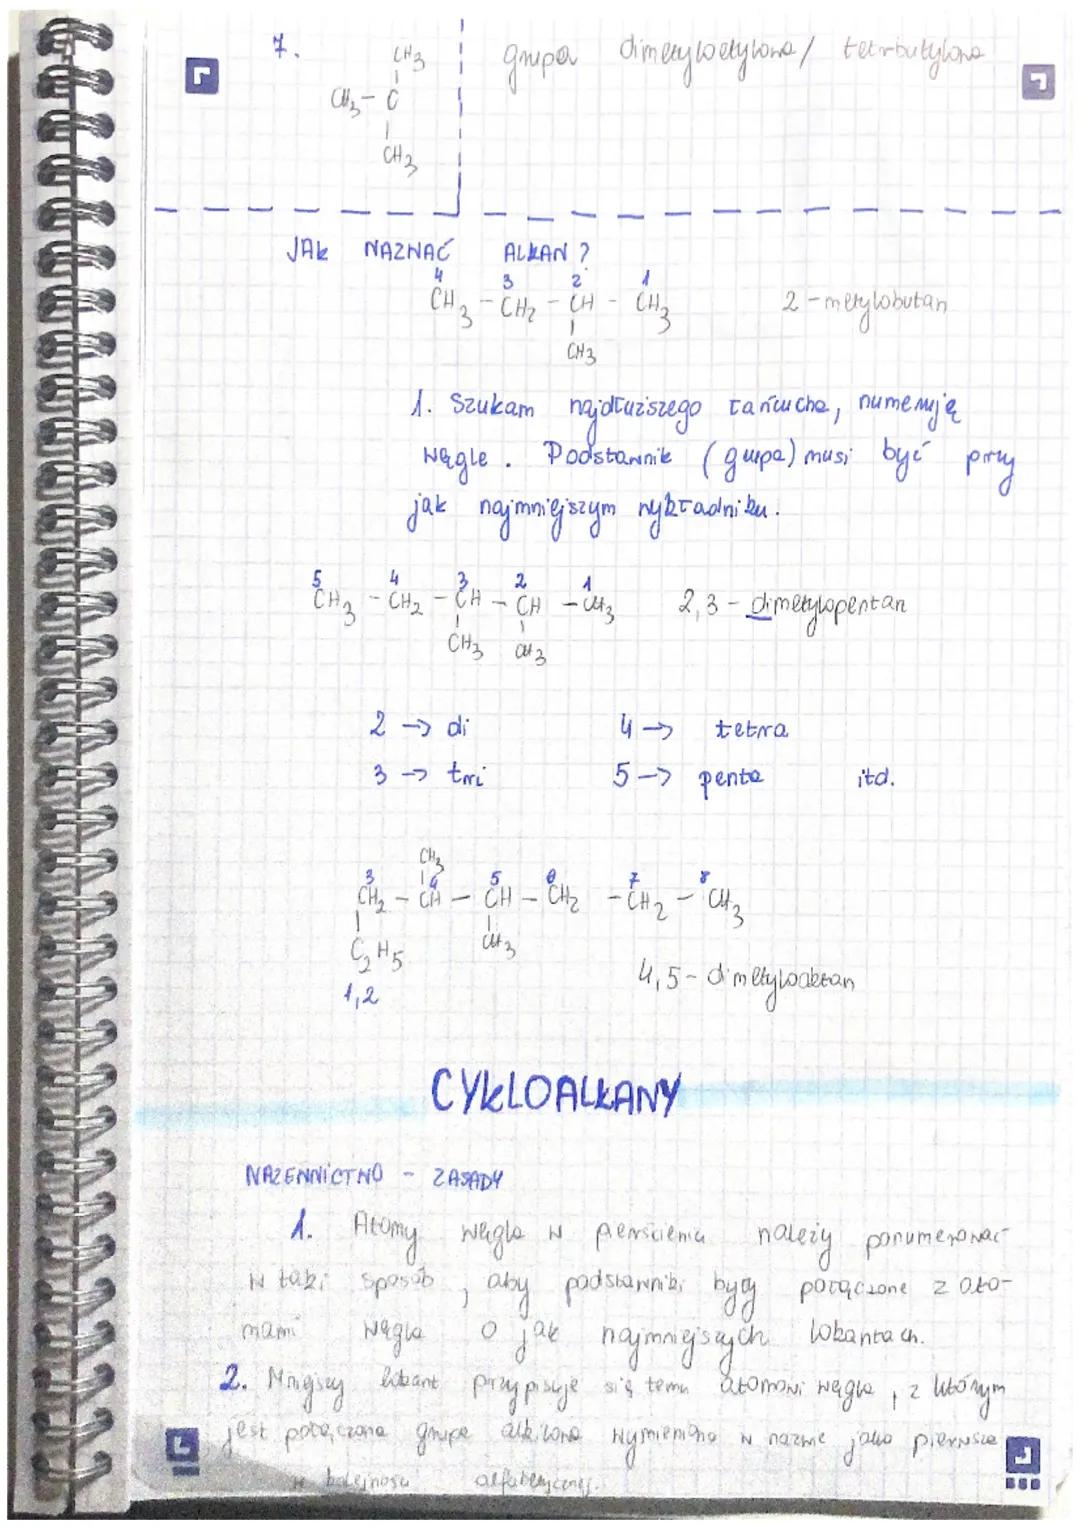 7.
CH3
grupa dimetyloetylowa / tetrbutylowa
CH3 - C
CH3
JAK NAZWAĆ ALKAN ?
4 3 2 1
CH3 - CH2 - CH - CH3 2-metylobutan
CH3
1. Szukam najdłuższego łańcucha, numeruję
węgle. Podstawnik (grupa) musi być przy
jak najmniejszym wykładniku.
5 4 3 2 1
CH3 - CH2 - CH - CH - CH3 2,3 - dimetylopentan
CH3 CH3
2 → di 4 → tetra
3 → tri 5 → penta itd.
CH3
3 4 5 6 7 8
CH2 - CH - CH - CH2 - CH2 - CH3
C2H5 CH3
1,2 4,5 - dimetylooktan
CYKLOALKANY
NAZEWNICTWO - ZASADY
1. Atomy węgla w pierścieniu należy ponumerować
w taki sposób, aby podstawniki były połączone z ato-
mami węgla o jak najmniejszych lokantach.
2. Mniejszy lokant przypisuje się temu atomowi węgla, z którym
jest połączona grupa alkilowa wymieniona w nazwie jako pierwsza
w kolejności alfabetycznej.